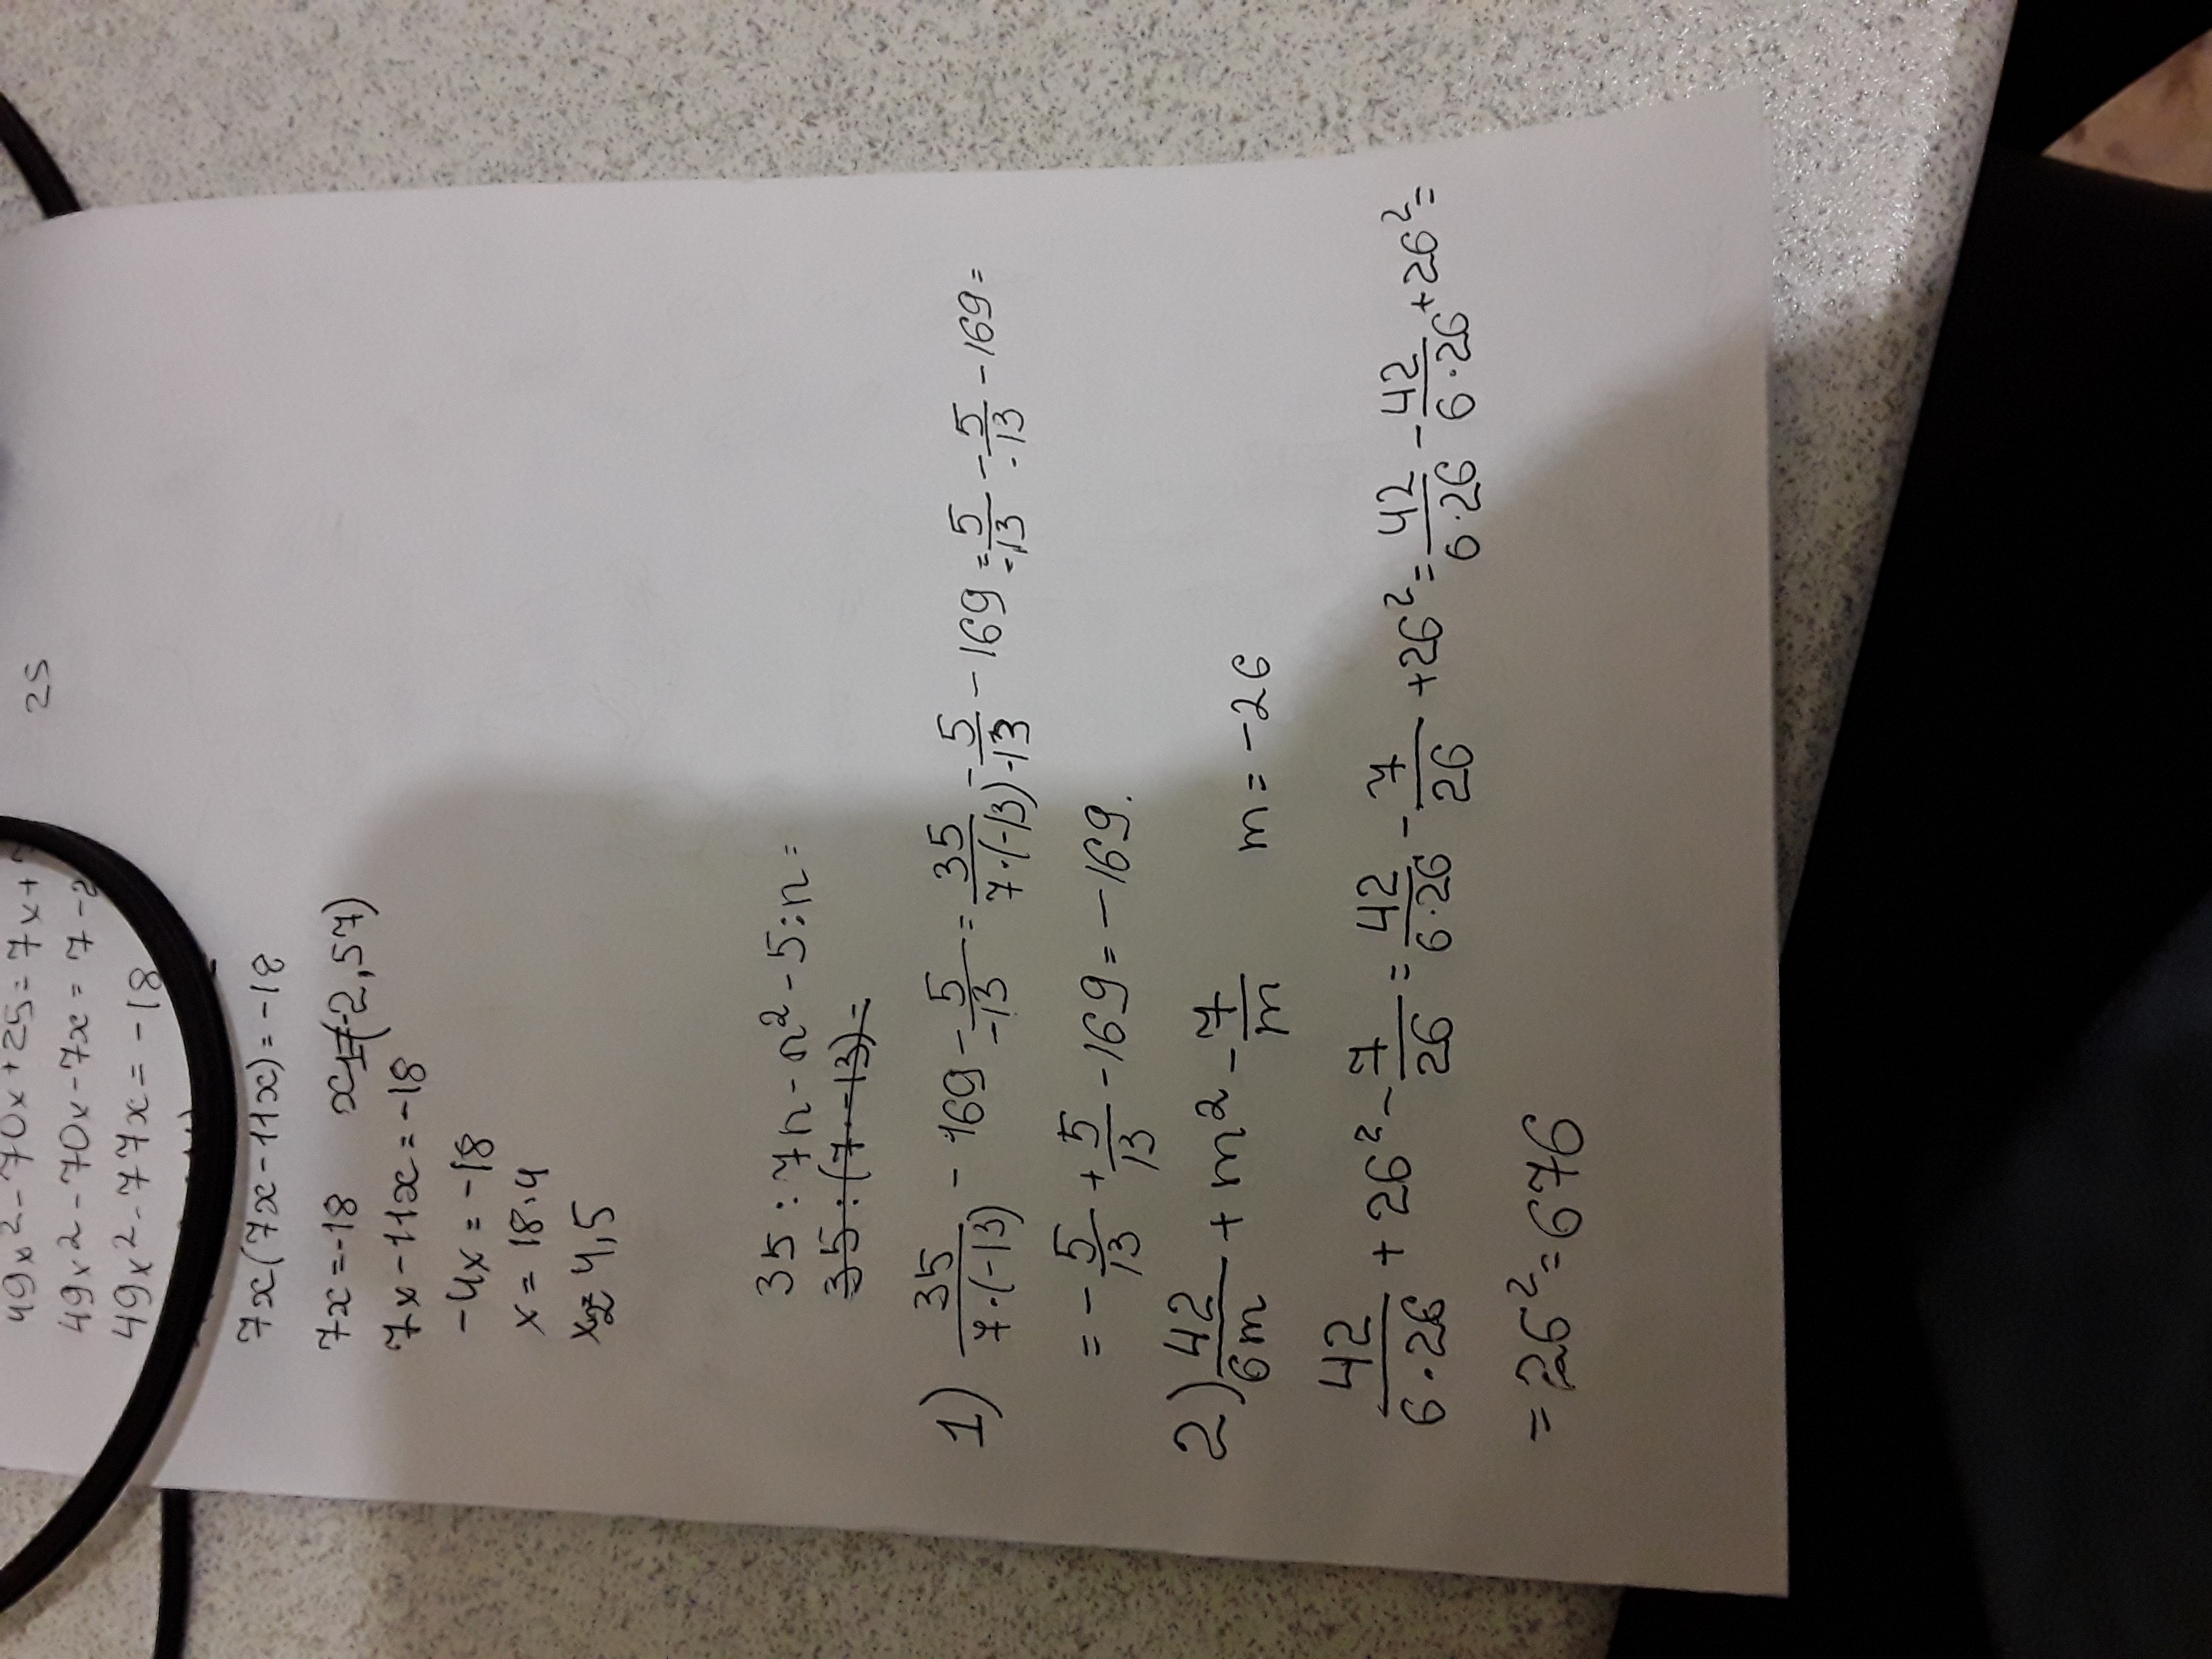 25
49x2-70x+25=7x+
49x2-70x-7x=7-2
49x2-77x=-18
7x(7x-11x)=-18
7x=-18 x1=(-2,57)
7x-11x=-18
-4x=-18
x=18:4
x2=4,5
35:7n-n²-5:n=
35:(7·-13)=
1) 35/(7·(-13)) - 169 - 5/-13 = 35/(7·(-13)) - 5/-13 - 169 = 5/-13 - 5/-13 - 169 =
= - 5/13 + 5/13 - 169 = -169.
2) 42/6m + m² - 7/m m = -26
42/(6·26) + 26² - 7/26 = 42/(6·26) - 7/26 + 26² = 42/(6·26) - 42/(6·26) + 26² =
= 26² = 676